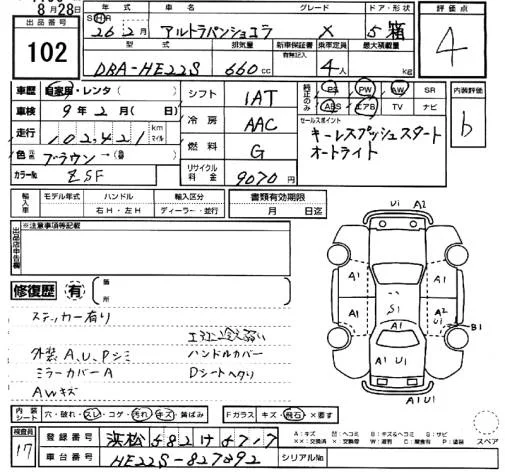 8月28日
出品番号
102
年式 車名 グレード ドア・形状
SH 26 2月 アルトラパンショコラ X 5 箱
型式 排気量 新車保証書 乗車定員 最大積載量
有無記入
DBA-HE22S 660cc 4人 kg
評価点
4
車歴 自家用・レンタ
車検 9年2月(日)
走行 102,421 km マイル
色 元色 ブラウン→(替)
カラーNo ZSF
シフト IAT
冷房 AAC
燃料 G
リサイクル料金 9070円
純正のみ PS PW AW SR
ABS エアB TV ナビ
セールスポイント
キーレスプッシュスタート
オートライト
内装評価
b
輸入車 モデル年式 ハンドル 輸入区分 書類有効期限
年 右H・左H ディーラー・並行 月 日迄
出品店申告欄 ※注意事項等記載
修復歴 有 箇所
ステッカー有り
外装A、U、Pシミ ハンドルカバー
ミラーカバーA Dシートヘタリ
AWキズ
Ui A2
A1 A1
S1 A2
A1 U1
B1
A1 U1
A1U1
内装シート 穴・破れ・スレ・コゲ・汚れ・キズ・黄ばみ Fガラス キズ・飛石・×要す
A:キズ U:ヘコミ B:キズ&ヘコミ S:サビ
XX:交換済 ×:交換等 W:波判 C:腐食有 P:塗装
スペア
検査員
17
登録番号 浜松582け4717
車台番号 HE22S-827892 シリアルNo